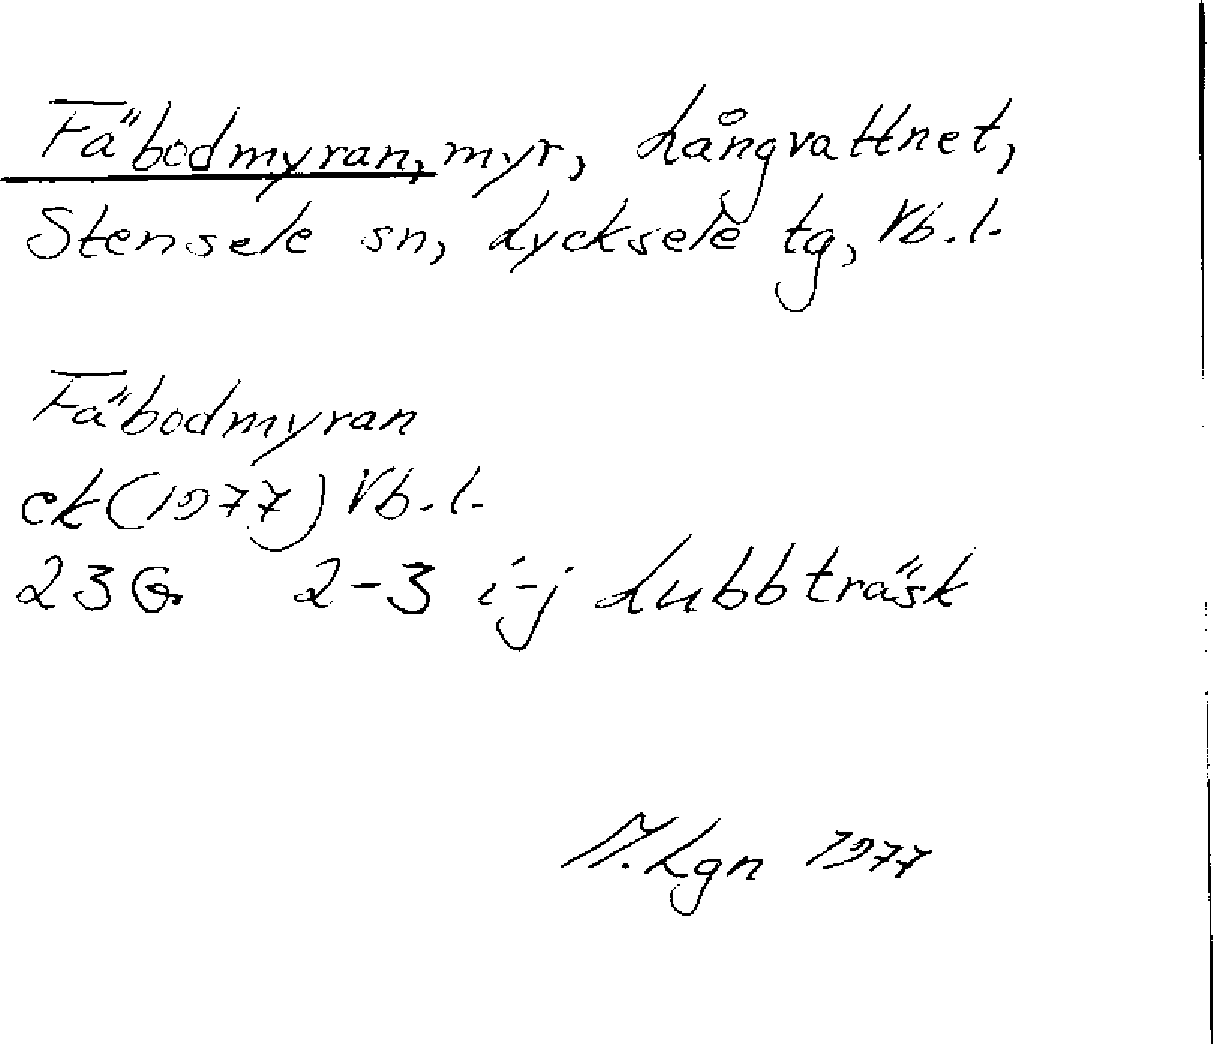 Fäbodmyran, myr, Långvattnet,
Stensele sn, Lycksele tg, Vb.l.
Fäbodmyran
ek (1977) Vb.l.
23G 2-3 i-j Lubbträsk
M. Lgn 1977